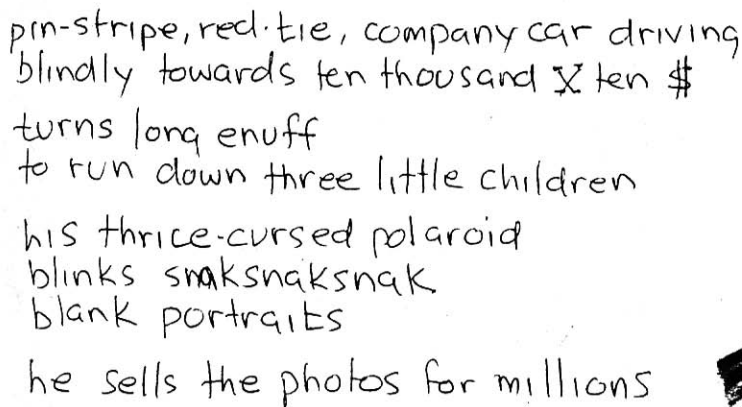 pin-stripe, red·tie, company car driving
blindly towards ten thousand X ten $
turns long enuff
to run down three little children
his thrice-cursed polaroid
blinks snaksnaksnak
blank portraits
he sells the photos for millions